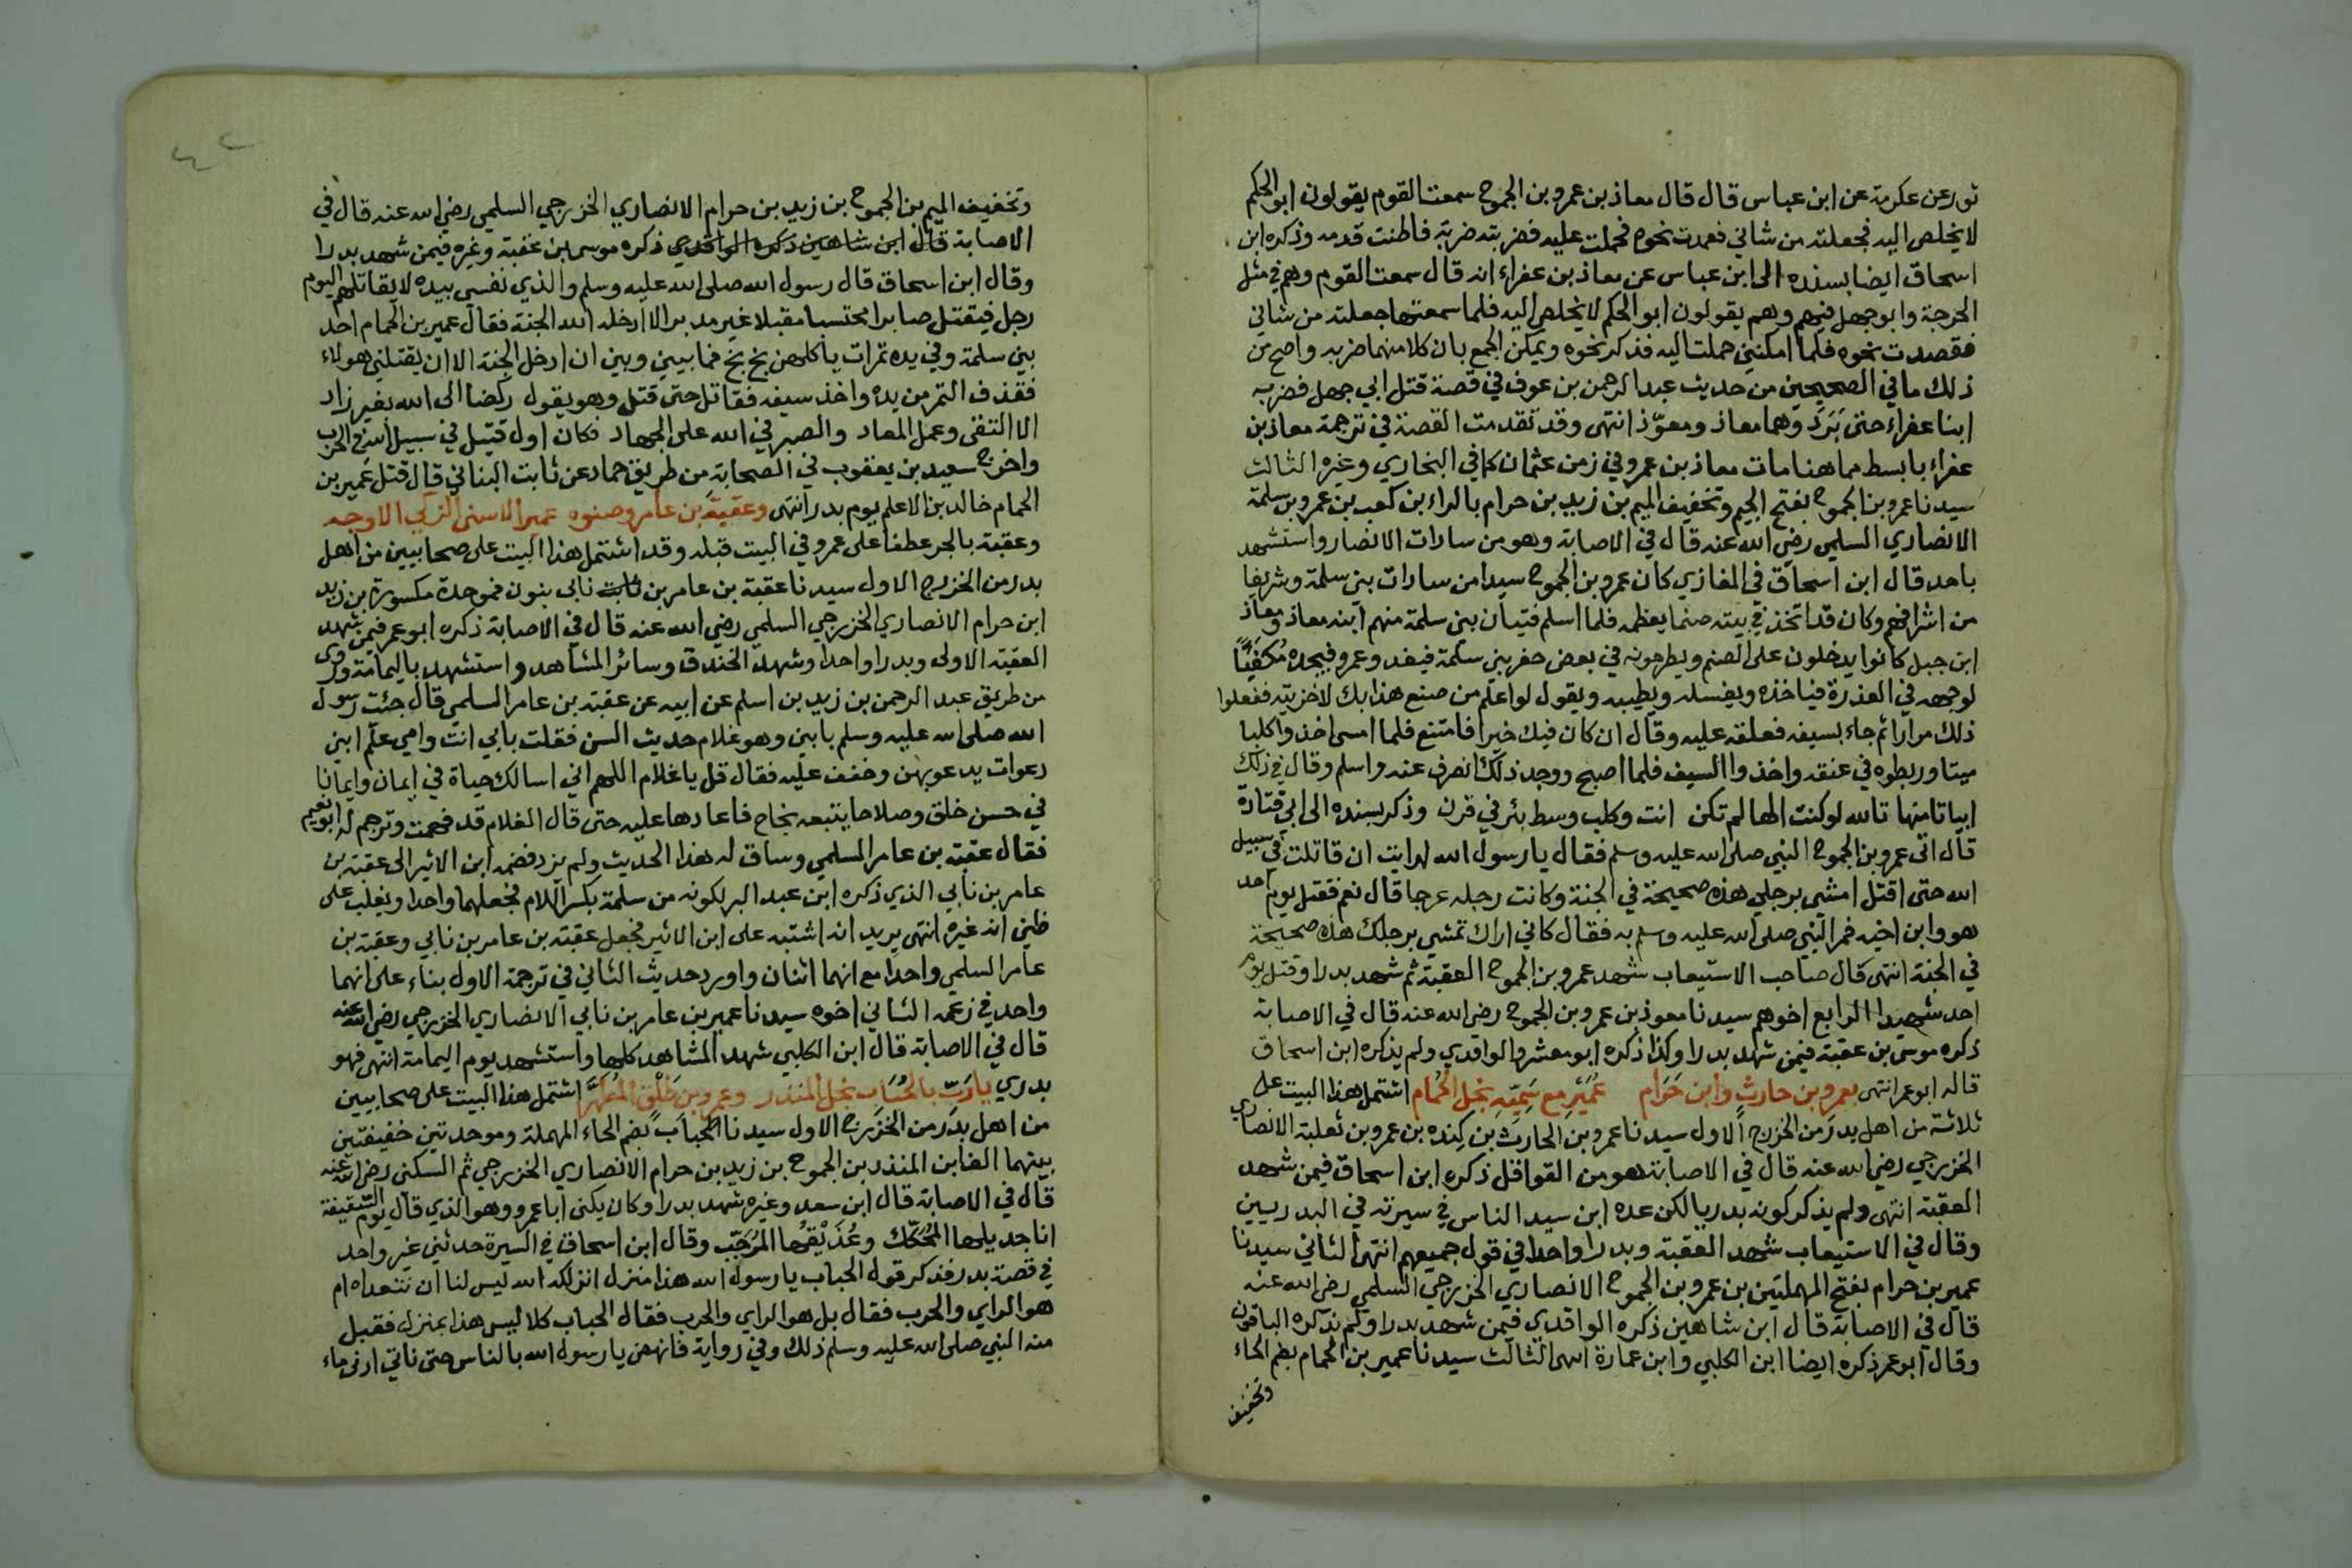 ثور عن عكرمة عن ابن عباس قال قال معاذ بن عمرو بن الجموح سمعت القوم يقولون ابو الحكم
لا يخلص اليه فجعلته من شاني فعمدت نحوه فحملت عليه فضربته ضربة فاطنت قدمه وذكره ابن
اسحاق ايضا بسنده الى ابن عباس عن معاذ بن عفراء انه قال سمعت القوم وهم في مثل
الحرجة وابو جهل فيهم وهم يقولون ابو الحكم لا يخلص اليه فلما سمعتها جعلته من شاني
فقصدت نحوه فلما امكنني حملت اليه فذكر نحوه ويمكن الجمع بان كلا منهما ضربه واصح من
ذلك ما في الصحيحين من حديث عبد الرحمن بن عوف في قصة قتل ابي جهل فضربه
ابنا عفراء حتى بَرَدَ وهما معاذ ومعوّذ انتهى وقد تقدمت القصة في ترجمة معاذ بن
عفراء بابسط مما هنا مات معاذ بن عمرو في زمن عثمان كما في البخاري وغيره الثالث
سيدنا عمرو بن الجموح بفتح الجيم وتخفيف الميم بن زيد بن حرام بالراء بن كعب بن عمرو بن سلمة
الانصاري السلمي رضي الله عنه قال في الاصابة وهو من سادات الانصار واستشهد
باحد قال ابن اسحاق في المغازي كان عمرو بن الجموح سيدا من سادات بني سلمة وشريفا
من اشرافهم وكان قد اتخذ في بيته صنما يعظمه فلما اسلم فتيان بني سلمة منهم ابنه معاذ ومعاذ
ابن جبل كانوا يدخلون على الصنم ويطرحونه في بعض حفر بني سلمة فيغدو عمرو فيجده مُكفَيًّا
لوجهه في العذرة فياخذه ويغسله ويطيبه ويقول لو اعلم من صنع هذا بك لاخزيته ففعلوا
ذلك مرارا ثم جاء بسيفه فعلقه عليه وقال ان كان فيك خيرا فامتنع فلما امسى اخذوا كلبا
ميتا وربطوه في عنقه واخذوا السيف فلما اصبح ووجد ذلك انصرف عنه واسلم وقال في ذلك
ابياتا منها تالله لو كنت الها لم تكن انت وكلب وسط بئر في قرن وذكر بسنده الى ابي قتادة
قال اتى عمرو بن الجموح النبي صلى الله عليه وسلم فقال يا رسول الله ارايت ان قاتلت في سبيل
الله حتى اقتل امشي برجلي هذه صحيحة في الجنة وكانت رجله عرجا قال نعم فقتل يوم احد
هو وابن اخيه فمر النبي صلى الله عليه وسلم به فقال كاني اراك تمشي برجلك هذه صحيحة
في الجنة انتهى قال صاحب الاستيعاب شهد عمرو بن الجموح العقبة ثم شهد بدرا وقتل يوم
احد شهيدا الرابع اخوهم سيدنا معوذ بن عمرو بن الجموح رضي الله عنه قال في الاصابة
ذكره موسى بن عقبة فيمن شهد بدرا وكذا ذكره ابو معشر والواقدي ولم يذكره ابن اسحاق
قاله ابو عمر انتهى بعمرو بن حارثٍ وابن حَرَام عُمَيْرٍ مع سَمِيِّهِ نجل الحُمام اشتمل هذا البيت على
ثلاثة من اهل بدر من الخزرج الاول سيدنا عمرو بن الحارث بن كنده بن عمرو بن ثعلبة الانصاري
الخزرجي رضي الله عنه قال في الاصابة هو من القواقل ذكره ابن اسحاق فيمن شهد
العقبة انتهى ولم يذكر كونه بدريا لكن عده ابن سيد الناس في سيرته في البدريين
وقال في الاستيعاب شهد العقبة وبدرا واحدا في قول جميعهم انتهى الثاني سيدنا
عمير بن حرام بفتح المهملتين بن عمرو بن الجموح الانصاري الخزرجي السلمي رضي الله عنه
قال في الاصابة قال ابن شاهين ذكره الواقدي فيمن شهد بدرا ولم يذكره الباقون
وقال ابو عمر ذكره ايضا ابن الكلبي وابن عمارة انتهى الثالث سيدنا عمير بن الحمام بضم الحاء
وتخفيف
٤٢
وتخفيف الميم بن الجموح بن زيد بن حرام الانصاري الخزرجي السلمي رضي الله عنه قال في
الاصابة قال ابن شاهين ذكره الواقدي ذكره موسى بن عقبة وغيره فيمن شهد بدرا
وقال ابن اسحاق قال رسول الله صلى الله عليه وسلم والذي نفسي بيده لا يقاتلهم اليوم
رجل فيقتل صابرا محتسبا مقبلا غير مدبر الا ادخله الله الجنة فقال عمير بن الحمام احد
بني سلمة وفي يده تمرات ياكلهن بخ بخ فما بيني وبين ان ادخل الجنة الا ان يقتلني هولاء
فقذف التمر من يده واخذ سيفه فقاتل حتى قتل وهو يقول ركضا الى الله بغير زاد
الا التقى وعمل المعاد والصبر في الله على الجهاد فكان اول قتيل في سبيل الله في الحرب
واخرج سعيد بن يعقوب في الصحابة من طريق حماد عن ثابت البناني قال قتل عمير بن
الحمام خالد بن الاعلم يوم بدر انتهى وعقبة بن عامر وصنوه عمير الاسنى الزكي الاوجه
وعقبة بالجر عطفا على عمرو في البيت قبله وقد اشتمل هذا البيت على صحابيين من اهل
بدر من الخزرج الاول سيدنا عقبة بن عامر بن نابي بنون فموحدة مكسورة بن زيد
ابن حرام الانصاري الخزرجي السلمي رضي الله عنه قال في الاصابة ذكره ابو عمر فيمن شهد
العقبة الاولى وبدرا واحدا وشهد الخندق وسائر المشاهد واستشهد باليمامة وروى
من طريق عبد الرحمن بن زيد بن اسلم عن ابيه عن عقبة بن عامر السلمي قال جئت رسول
الله صلى الله عليه وسلم بابني وهو غلام حديث السن فقلت بابي انت وامي علّم ابني
دعوات يدعو بهن وخفف عليه فقال قل يا غلام اللهم اني اسالك حياة في ايمان وايمانا
في حسن خلق وصلاحا يتبعه نجاح فاعادها عليه حتى قال الغلام قد فهمت وترجم له ابو نعيم
فقال عقبة بن عامر السلمي وساق له هذا الحديث ولم يزد فضمه ابن الاثير الى عقبة بن
عامر بن نابي الذي ذكره ابن عبد البر لكونه من سلمة بكسر اللام فجعلهما واحدا ويغلب على
ظني انه غيره انتهى يريد انه اشتبه على ابن الاثير فجعل عقبة بن عامر بن نابي وعقبة بن
عامر السلمي واحدا مع انهما اثنان واورد حديث الثاني في ترجمة الاول بناء على انهما
واحد في زعمه الثاني اخوه سيدنا عمير بن عامر بن نابي الانصاري الخزرجي رضي الله عنه
قال في الاصابة قال ابن الكلبي شهد المشاهد كلها واستشهد يوم اليمامة انتهى فهو
بدري يا رَبِّ بالحُبَاب نجل المنذر وعمرو بن طَلْقٍ المُطَهَّر اشتمل هذا البيت على صحابيين
من اهل بدر من الخزرج الاول سيدنا الحباب بضم الحاء المهملة وموحدتين خفيفتين
بينهما الف ابن المنذر بن الجموح بن زيد بن حرام الانصاري الخزرجي ثم السلمي رضي الله عنه
قال في الاصابة قال ابن سعد وغيره شهد بدرا وكان يكنى ابا عمرو وهو الذي قال يوم السقيفة
انا جديلها المُحَكّك وعُذَيْقُها المُرَجّب وقال ابن اسحاق في السيرة حدثني غير واحد
في قصة بدر فذكر قول الحباب يا رسول الله هذا منزل انزلكه الله ليس لنا ان نتعداه ام
هو الراي والحرب فقال بل هو الراي والحرب فقال الحباب كلا ليس هذا بمنزل فقبل
منه النبي صلى الله عليه وسلم ذلك وفي رواية فانهض يا رسول الله بالناس حتى ناتي ادنى ماء